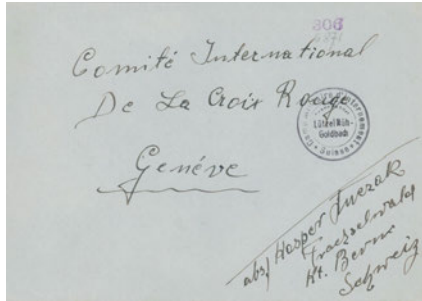 306
Comité International
De La Croix Rouge
Genéve
Lützelflüh-
Goldbach
Suisse
abs/ Kasper Jurczak
Trachselwald
Kt. Berne
Schweiz